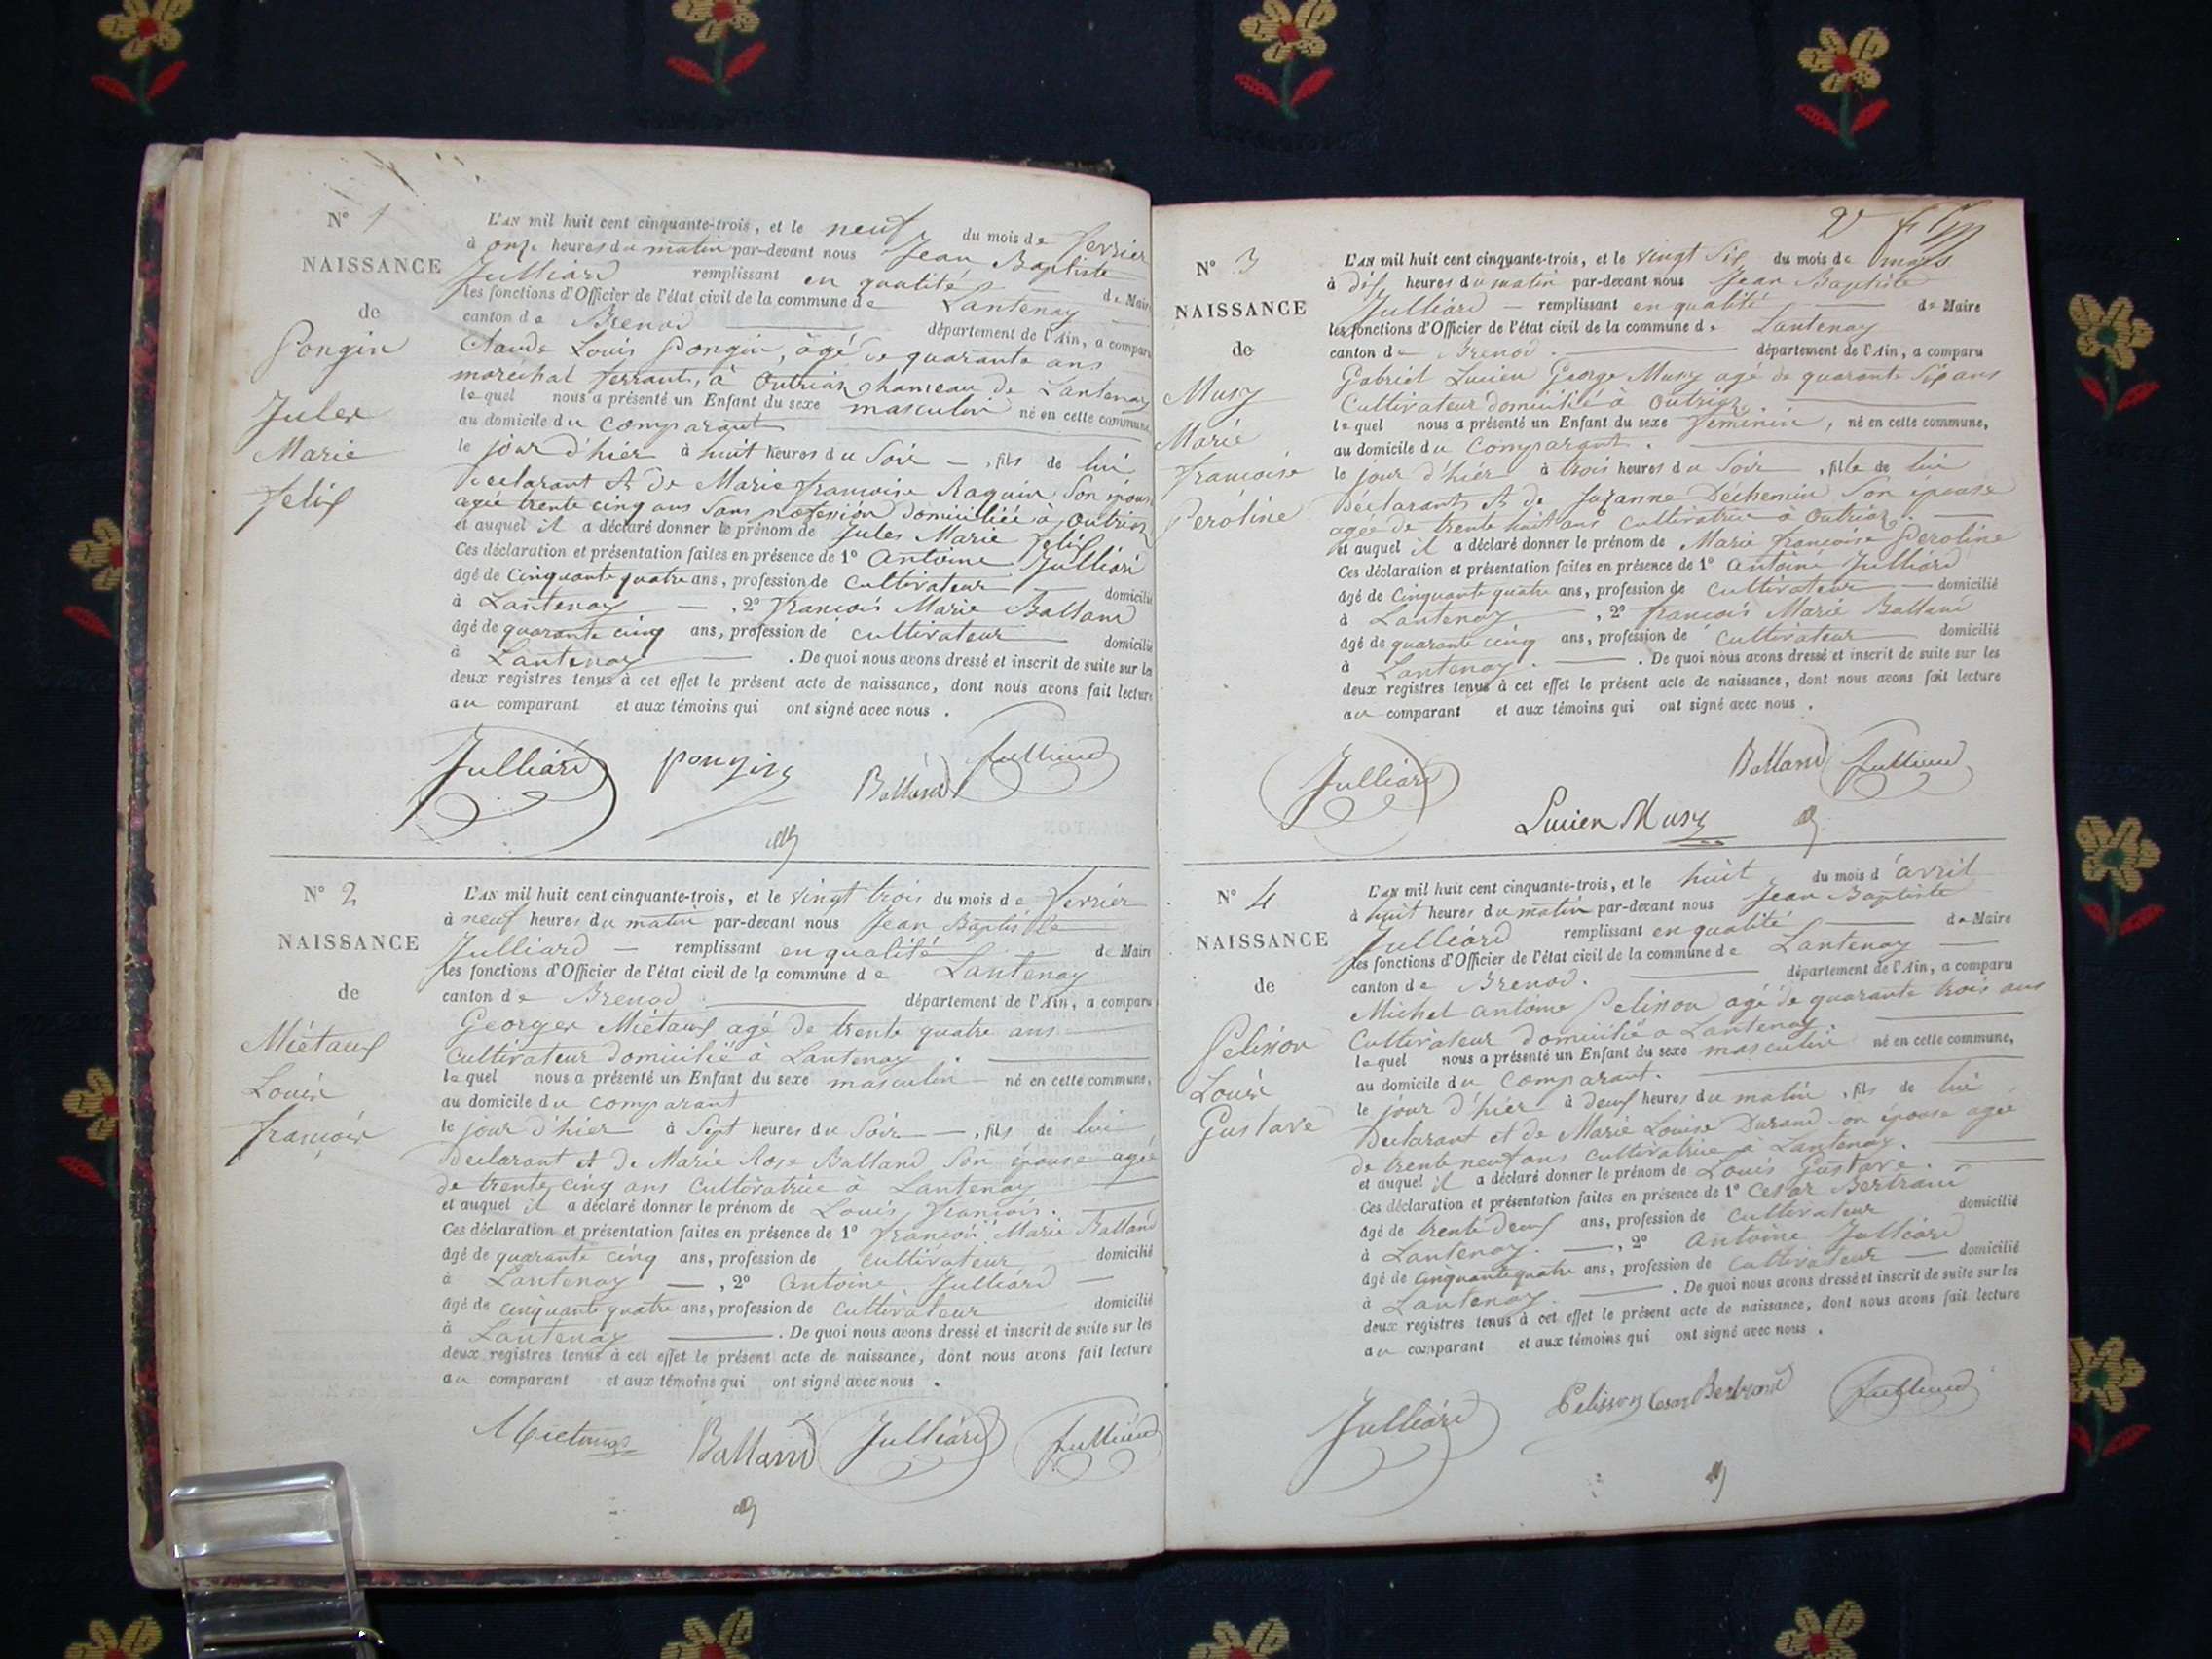 N° 1
NAISSANCE
de
Pongin
Jules
Marie
Felix
L'AN mil huit cent cinquante-trois, et le neuf du mois de fevrier
à onze heures du matin par-devant nous Jean Baptiste
Julliard remplissant en qualité de Maire
les fonctions d'Officier de l'état civil de la commune de Lantenay
canton de Brenod département de l'Ain, a comparu
Claude Louis Pongin, âgé de quarante ans
marechal ferrant, à Outriaz hameau de Lantenay
lequel nous a présenté un Enfant du sexe masculin né en cette commune,
au domicile du comparant
le jour d'hier à huit heures du soir, fils de lui
declarant et de Marie françoise Raguin son épouse
agée trente cinq ans sans profession domiciliée à Outriaz
et auquel il a déclaré donner le prénom de Jules Marie Felix
Ces déclaration et présentation faites en présence de 1° antoine Julliard
âgé de cinquante quatre ans, profession de cultivateur domicilié
à Lantenay, 2° françois Marie Balland
âgé de quarante cinq ans, profession de cultivateur domicilié
à Lantenay. De quoi nous avons dressé et inscrit de suite sur les
deux registres tenus à cet effet le présent acte de naissance, dont nous avons fait lecture
au comparant et aux témoins qui ont signé avec nous.
Julliard pongin Balland Julliard
N° 2
NAISSANCE
de
Miétaux
Louis
françois
L'AN mil huit cent cinquante-trois, et le vingt trois du mois de fevrier
à neuf heures du matin par-devant nous Jean Baptiste
Julliard remplissant en qualité de Maire
les fonctions d'Officier de l'état civil de la commune de Lantenay
canton de Brenod département de l'Ain, a comparu
Georges Miétaux agé de trente quatre ans
cultivateur domicilié à Lantenay.
lequel nous a présenté un Enfant du sexe masculin né en cette commune,
au domicile du comparant
le jour d'hier à sept heures du soir, fils de lui
declarant et de Marie Rose Balland son épouse agée
de trente cinq ans cultivatrice à Lantenay
et auquel il a déclaré donner le prénom de Louis françois.
Ces déclaration et présentation faites en présence de 1° françois Marie Balland
âgé de quarante cinq ans, profession de cultivateur domicilié
à Lantenay, 2° antoine Julliard
âgé de cinquante quatre ans, profession de cultivateur domicilié
à Lantenay. De quoi nous avons dressé et inscrit de suite sur les
deux registres tenus à cet effet le présent acte de naissance, dont nous avons fait lecture
au comparant et aux témoins qui ont signé avec nous.
Mietaux Balland Julliard Julliard
N° 3
NAISSANCE
de
Musy
Marie
françoise
Pérotine
L'AN mil huit cent cinquante-trois, et le vingt six du mois de mars
à dix heures du matin par-devant nous Jean Baptiste
Julliard remplissant en qualité de Maire
les fonctions d'Officier de l'état civil de la commune de Lantenay
canton de Brenod. département de l'Ain, a comparu
Gabriel Lucien George Musy agé de quarante six ans
cultivateur domicilié à Outriaz.
lequel nous a présenté un Enfant du sexe féminin, né en cette commune,
au domicile du comparant.
le jour d'hier à trois heures du soir, fille de lui
déclarant et de Suzanne Déchemin son épouse
agée de trente huit ans cultivatrice à Outriaz.
et auquel il a déclaré donner le prénom de Marie françoise Perotine
Ces déclaration et présentation faites en présence de 1° antoine Julliard
âgé de cinquante quatre ans, profession de cultivateur domicilié
à Lantenay, 2° françois Marie Balland
âgé de quarante cinq ans, profession de cultivateur domicilié
à Lantenay. De quoi nous avons dressé et inscrit de suite sur les
deux registres tenus à cet effet le présent acte de naissance, dont nous avons fait lecture
au comparant et aux témoins qui ont signé avec nous.
Julliard Balland Julliard
Lucien Musy
N° 4
NAISSANCE
de
Pelisson
Louis
Gustave
L'AN mil huit cent cinquante-trois, et le huit du mois d'avril
à huit heures du matin par-devant nous Jean Baptiste
Julliard remplissant en qualité de Maire
les fonctions d'Officier de l'état civil de la commune de Lantenay
canton de Brenod. département de l'Ain, a comparu
Michel antoine Pelisson agé de quarante trois ans
cultivateur domicilié a Lantenay.
lequel nous a présenté un Enfant du sexe masculin né en cette commune,
au domicile du comparant.
le jour d'hier à deux heures du matin, fils de lui
declarant et de Marie Louise Durand son épouse agée
de trente neuf ans cultivatrice a Lantenay.
et auquel il a déclaré donner le prénom de Louis Gustave.
Ces déclaration et présentation faites en présence de 1° Cesar Bertrand
âgé de trente deux ans, profession de cultivateur domicilié
à Lantenay., 2° antoine Julliard
âgé de cinquante quatre ans, profession de cultivateur domicilié
à Lantenay. De quoi nous avons dressé et inscrit de suite sur les
deux registres tenus à cet effet le présent acte de naissance, dont nous avons fait lecture
au comparant et aux témoins qui ont signé avec nous.
Julliard Pelisson Cesar Bertrand Julliard